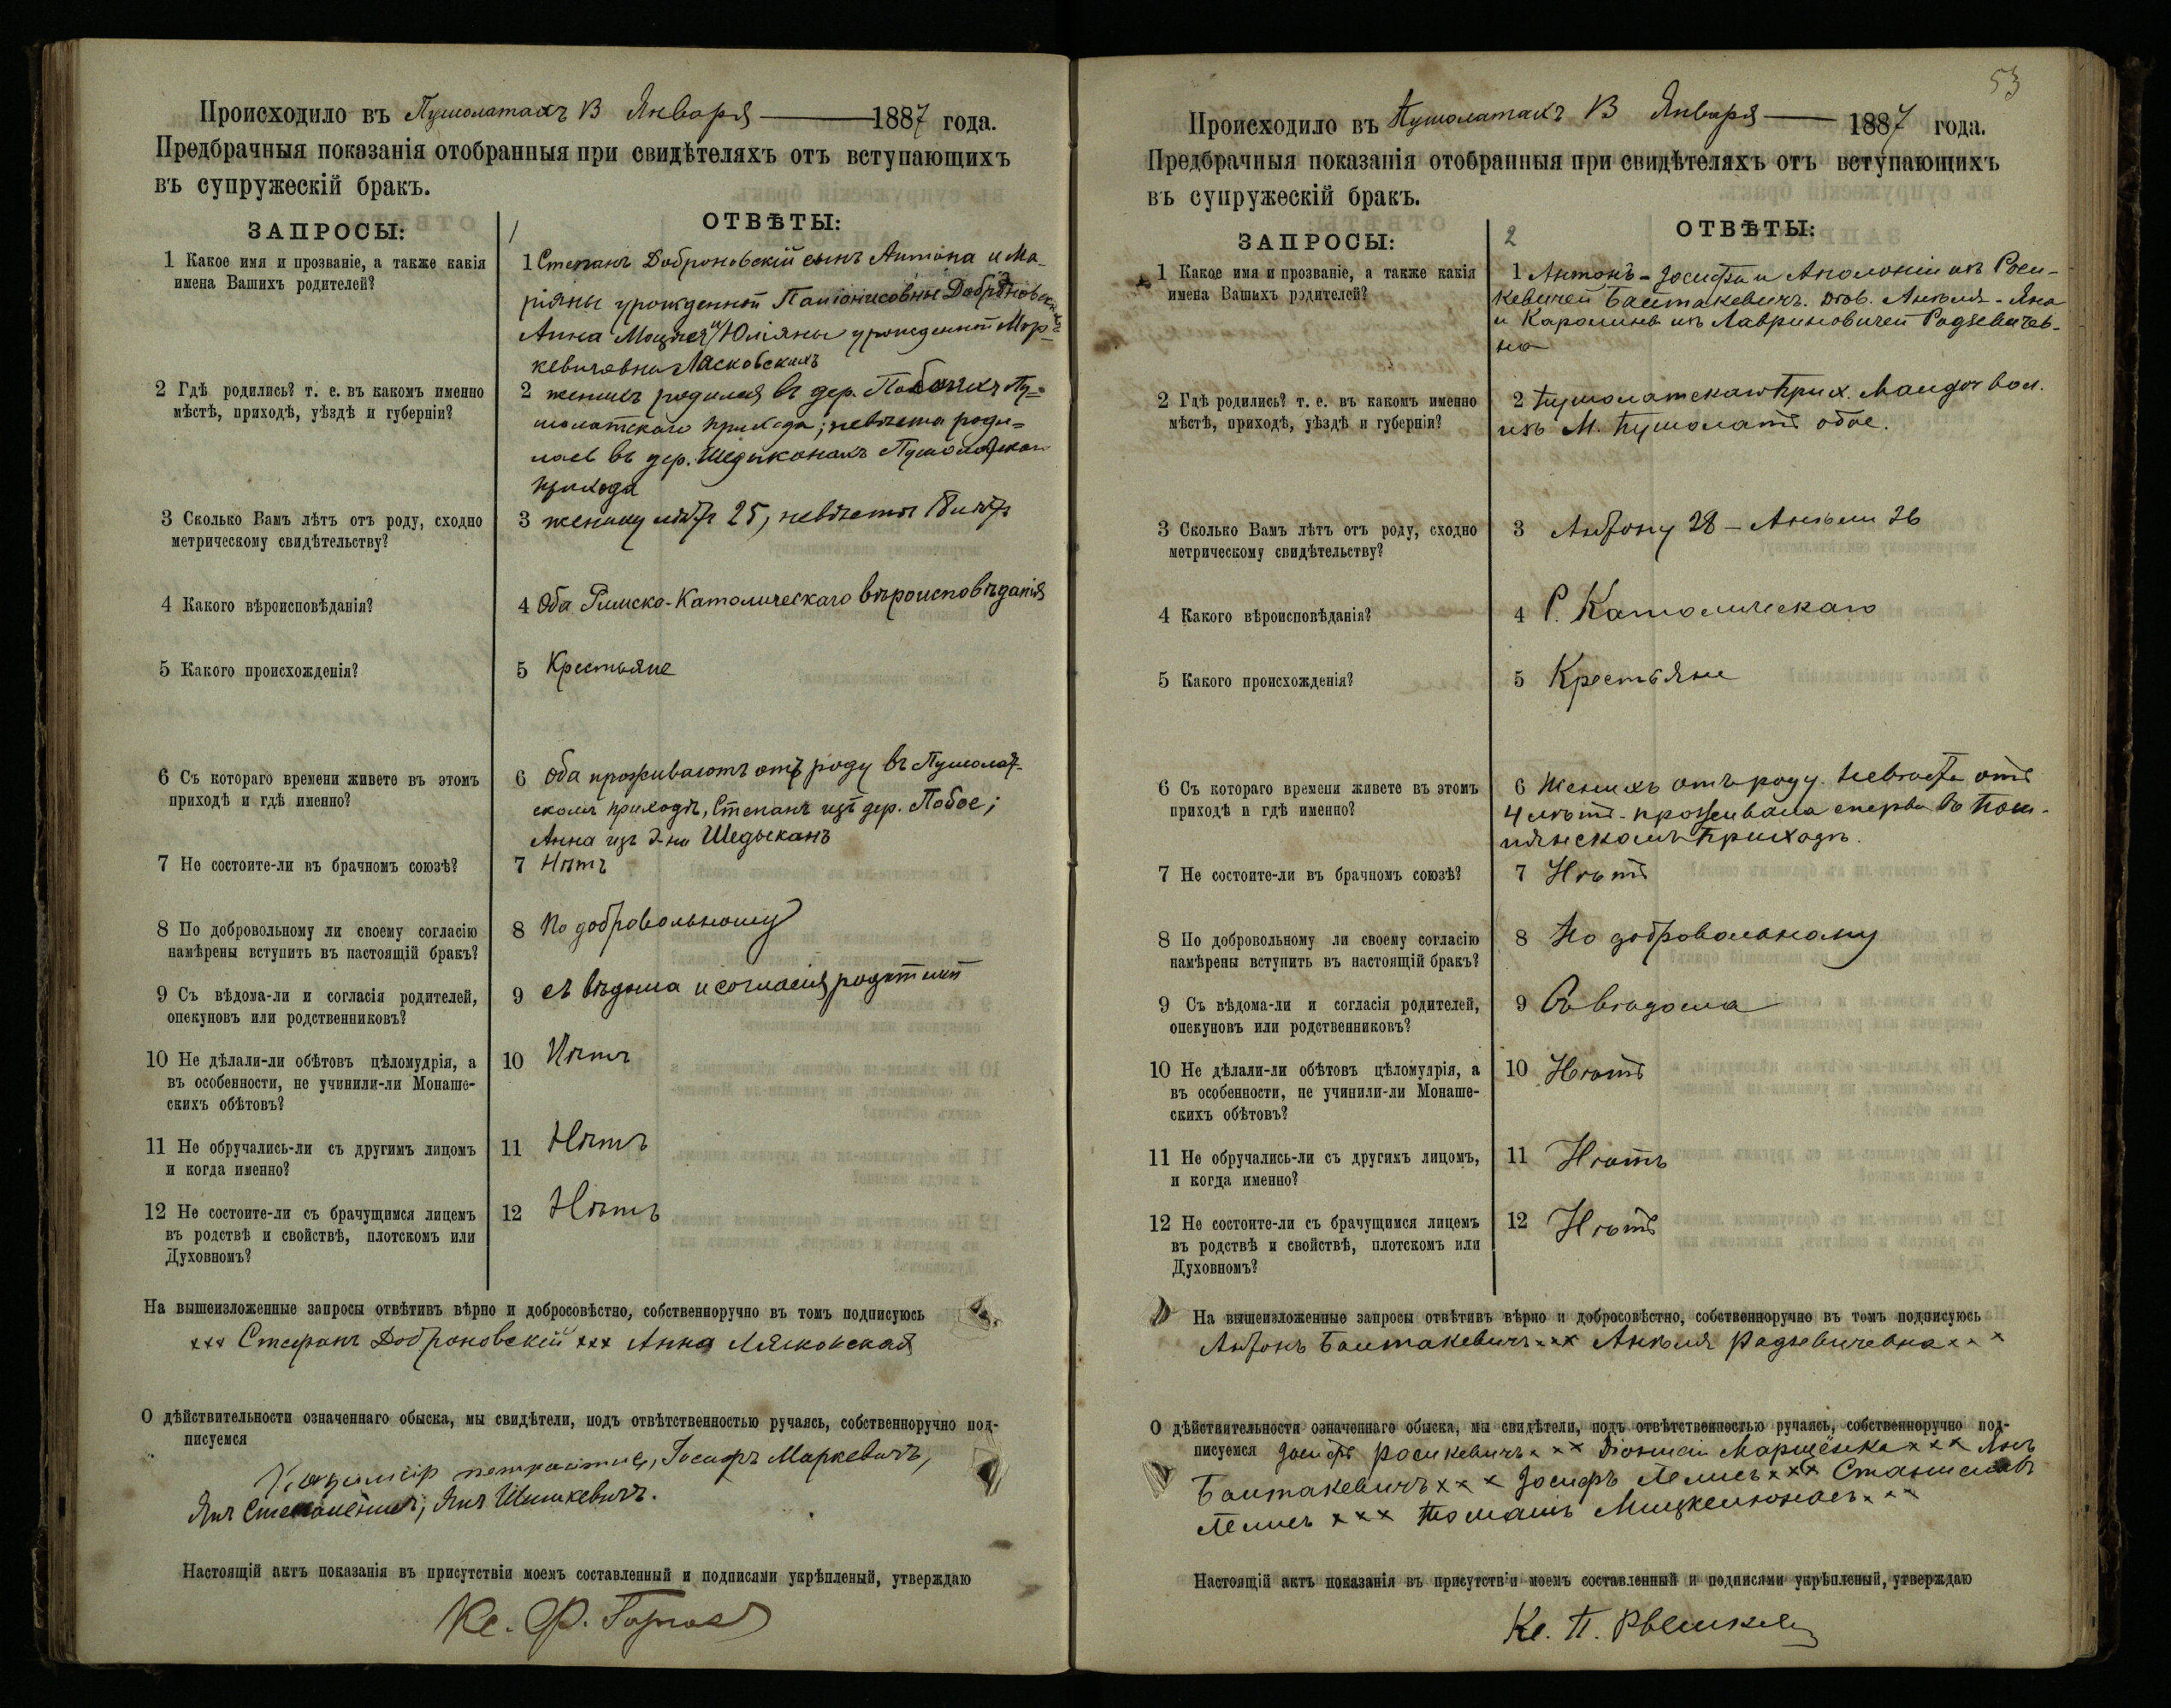 Происходило въ Пушолатахъ 13 Января 1887 года.
Предбрачныя показанія отобранныя при свидѣтеляхъ отъ вступающихъ
въ супружескій бракъ.
ЗАПРОСЫ:
1 ОТВѢТЫ:
1 Какое имя и прозваніе, а также какія
имена Вашихъ родителей?
1 Степанъ Доброновскій сынъ Антона и Ма-
ріяны урожденной Доброновскихъ
Анна и Юліяны урожденной Мар-
кевичевны Лясковскихъ
2 Гдѣ родились? т. е. въ какомъ именно
мѣстѣ, приходѣ, уѣздѣ и губерніи?
2 женихъ родился въ дер. Пу-
шолатскаго прихода; невѣста роди-
лась въ дер. Шедыканахъ Пушолатскаго
прихода
3 Сколько Вамъ лѣтъ отъ роду, сходно
метрическому свидѣтельству?
3 жениху лѣтъ 25, невѣсты 18 лѣтъ
4 Какого вѣроисповѣданія?
4 Оба Римско-Католическаго вѣроисповѣданія
5 Какого происхожденія?
5 Крестьяне
6 Съ котораго времени живете въ этомъ
приходѣ и гдѣ именно?
6 Оба проживаютъ отъ роду въ Пушолат-
скомъ приходѣ, Степанъ изъ дер. Побое;
Анна изъ д-ни Шедыканъ
7 Не состоите-ли въ брачномъ союзѣ?
7 Нѣтъ
8 По добровольному ли своему согласію
намѣрены вступить въ настоящій бракъ?
8 По добровольному
9 Съ вѣдома-ли и согласія родителей,
опекуновъ или родственниковъ?
9 съ вѣдома и согласія родител
10 Не дѣлали-ли обѣтовъ цѣломудрія, а
въ особенности, не учинили-ли Монаше-
скихъ обѣтовъ?
10 Нѣтъ
11 Не обручались-ли съ другимъ лицомъ
и когда именно?
11 Нѣтъ
12 Не состоите-ли съ брачущимся лицемъ
въ родствѣ и свойствѣ, плотскомъ или
Духовномъ?
12 Нѣтъ
На вышеизложенные запросы отвѣтивъ вѣрно и добросовѣстно, собственноручно въ томъ подписуюсь
××× Стефанъ Доброновскій ××× Анна Лясковская
О дѣйствительности означеннаго обыска, мы свидѣтели, подъ отвѣтственностью ручаясь, собственноручно под-
писуемся
Казимір, Іосифъ Маркевичъ,
Янъ, Янъ Шишкевичъ.
Настоящій актъ показанія въ присутствіи моемъ составленный и подписями укрѣпленый, утверждаю
Кс. Ф.
53
Происходило въ Пушолатахъ 13 Января 1887 года.
Предбрачныя показанія отобранныя при свидѣтеляхъ отъ вступающихъ
въ супружескій бракъ.
ЗАПРОСЫ:
2 ОТВѢТЫ:
1 Какое имя и прозваніе, а также какія
имена Вашихъ родителей?
1 Антонъ - Іосифа и Аполоніи изъ Роси-
кевичей Балтакевичъ. Анъеля - Яна
и Каролины изъ Лавриновичей Радзевичев-
на
2 Гдѣ родились? т. е. въ какомъ именно
мѣстѣ, приходѣ, уѣздѣ и губерніи?
2 Пушолатскаго прих. вол.
изъ М. Пушолатъ обое.
3 Сколько Вамъ лѣтъ отъ роду, сходно
метрическому свидѣтельству?
3 Антону 28 - Анъели 26
4 Какого вѣроисповѣданія?
4 Р. Католическаго
5 Какого происхожденія?
5 Крестьяне
6 Съ котораго времени живете въ этомъ
приходѣ и гдѣ именно?
6 Женихъ отъ роду. Невѣста отъ
4 лѣтъ - проживала сперва въ
приходѣ.
7 Не состоите-ли въ брачномъ союзѣ?
7 Нѣтъ
8 По добровольному ли своему согласію
намѣрены вступить въ настоящій бракъ?
8 По добровольному
9 Съ вѣдома-ли и согласія родителей,
опекуновъ или родственниковъ?
9 Съ вѣдома
10 Не дѣлали-ли обѣтовъ цѣломудрія, а
въ особенности, не учинили-ли Монаше-
скихъ обѣтовъ?
10 Нѣтъ
11 Не обручались-ли съ другихъ лицомъ,
и когда именно?
11 Нѣтъ
12 Не состоите-ли съ брачущимся лицемъ
въ родствѣ и свойствѣ, плотскомъ или
Духовномъ?
12 Нѣтъ
На вышеизложенные запросы отвѣтивъ вѣрно и добросовѣстно, собственноручно въ томъ подписуюсь
Антонъ Балтакевичъ ××× Анъеля Радзевичевна ×××
О дѣйствительности означеннаго обыска, мы свидѣтели, подъ отвѣтственностью ручаясь, собственноручно под-
писуемся Іосифъ Росикевичъ ××× Діонисій ××× Янъ
Балтакевичъ ××× Іосифъ Лелисъ ××× Станиславъ
Лелисъ ××× Томашъ Мицкелюнасъ ×××
Настоящій актъ показанія въ присутствіи моемъ составленный и подписями укрѣпленый, утверждаю
Кс. П.